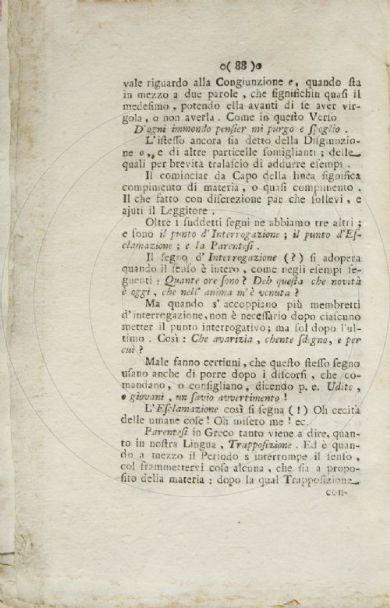 o( 88 )o
vale riguardo alla Congiunzione e, quando ſta
in mezzo a due parole, che ſignifichin quaſi il
medeſimo, potendo ella avanti di ſe aver vir-
gola, o non averla. Come in queſto Verſo
D'ogni immondo penſier mi purgo e ſpoglio.
L'iſteſſo ancora ſia detto della Diſgiunzio-
ne o, e di altre particelle ſomiglianti; delle
quali per brevità tralaſcio di addurre eſempi.
Il cominciar da Capo della linea ſignifica
compimento di materia, o quaſi compimento.
Il che fatto con diſcrezione par che ſollevi, e
ajuti il Leggitore.
Oltre i ſuddetti ſegni ne abbiamo tre altri;
e ſono il punto d'Interrogazione; il punto d'Eſ-
clamazione; e la Parenteſi.
Il ſegno d'Interogazione (?) ſi adopera
quando il ſenſo è intero, come negli eſempi ſe-
guenti: Quante ore ſono? Deh queſta che novità
è oggi, che nell' anima m'è venuta?
Ma quando s'accoppiano più membretti
d'interrogazione, non è neceſſario dopo ciaſcuno
metter il punto interrogativo; ma ſol dopo l'ul-
timo. Così: Che avarizia, chente ſdegno, e per
cui?
Male fanno certiuni, che queſto ſteſſo ſegno
uſano anche di porre dopo i diſcorſi, che co-
mandano, o conſigliano, dicendo p. e. Udite,
o giovani, un ſavio avvertimento!
L'Eſclamazione così ſi ſegna (!) Oh cecità
delle umane coſe! Oh miſero me! ec.
Parenteſi in Greco tanto viene a dire, quan-
to in noſtra Lingua, Trappoſizione. Ed è quan-
do a mezzo il Periodo s'interrompe il ſenſo,
col frammettervi coſa alcuna, che ſia a propo-
ſito della materia: dopo la qual Trappoſizione
con-